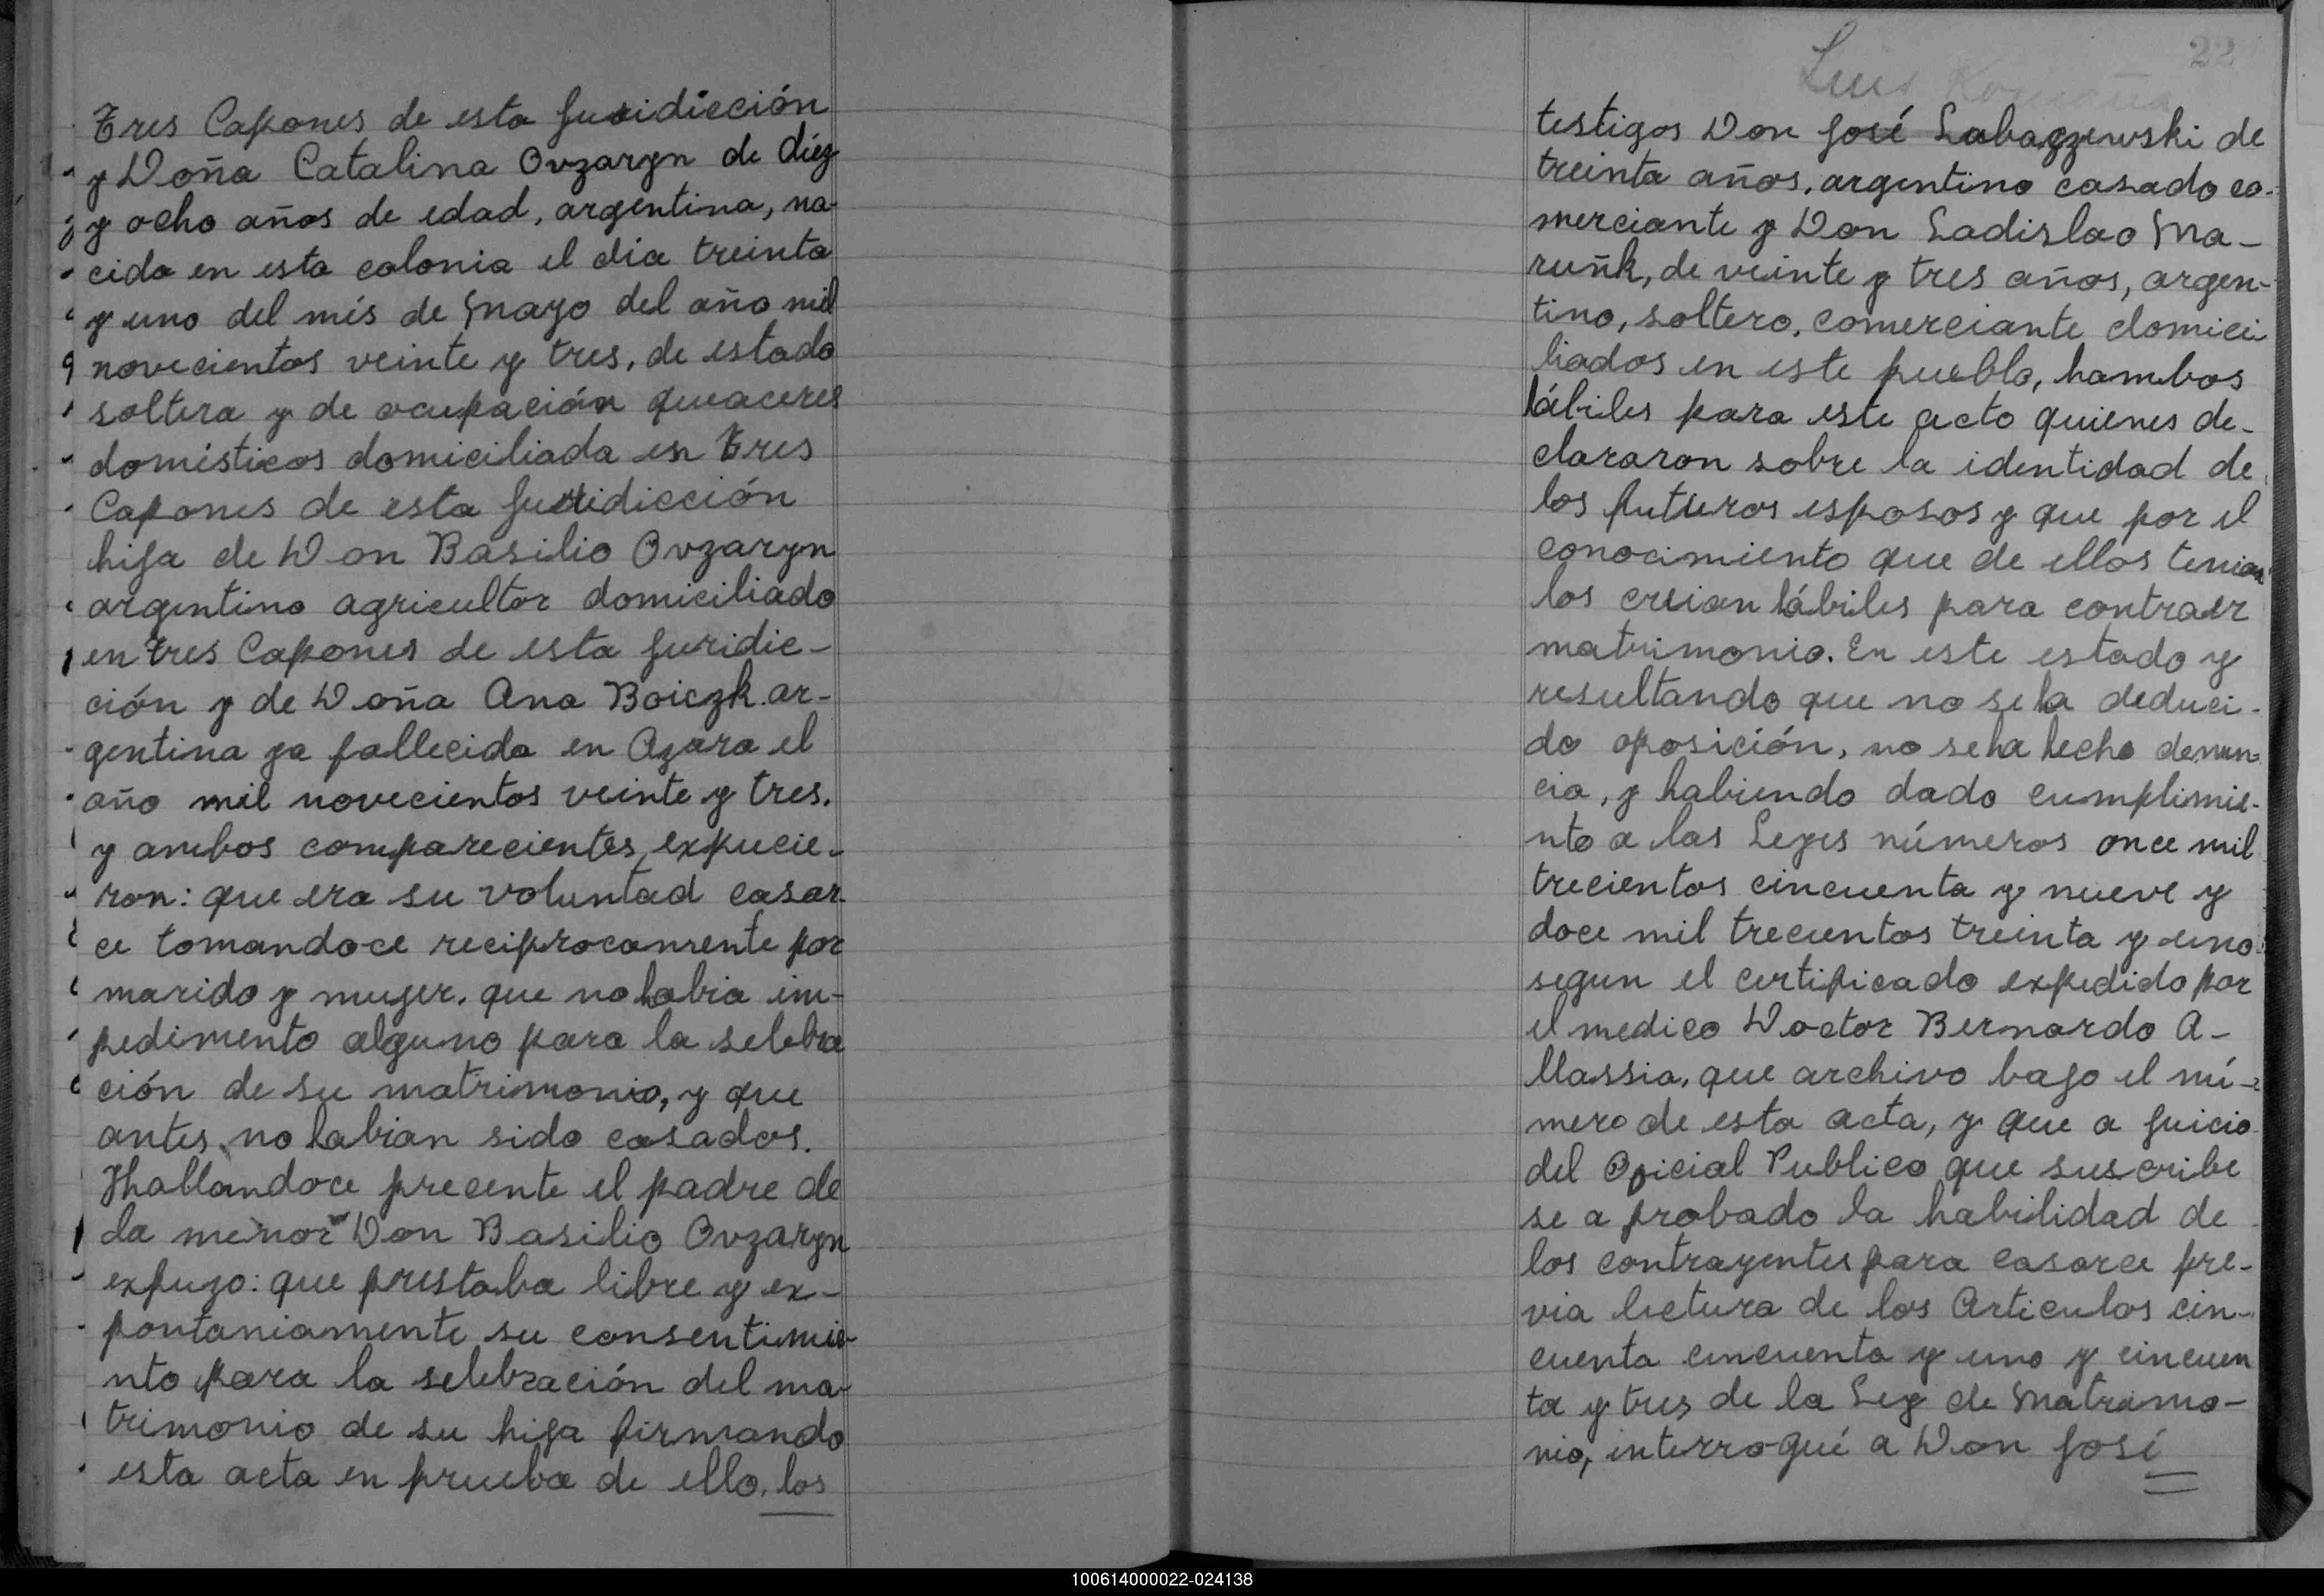 Tres Capones de esta Juridicción
y Doña Catalina Ovzaryn de diéz
y ocho años de edad, argentina, na
cida en esta colonia el dia treinta
y uno del més de Mayo del año mil
novecientos veinte y tres, de estado
soltera y de ocupación queaceres
domésticos domiciliada en Tres
Capones de esta Juridicción
hija de Don Basilio Ovzaryn
argentino agricultor domiciliado
en Tres Capones de esta Juridic-
ción y de Doña Ana Boiczk. ar-
gentina ya fallecida en Azara el
año mil novecientos veinte y tres.
y ambos comparecientes, expucie-
ron: que era su voluntad casar-
ce tomandoce reciprocamente por
marido y mujer, que no habia im-
pedimento alguno para la selebra
ción de su matrimonio, y que
antes, no habian sido casados.
Hhallandoce precente el padre de
la menor Don Basilio Ovzaryn
expuzo: que prestaba libre y ex-
pontaniamente su consentimie-
nto para la selebración del ma-
trimonio de su hija firmando
esta acta en prueba de ello, los
22
Luis
testigos Don José Labaczewski de
treinta años, argentino casado co-
merciante y Don Ladislao Ma-
ruñk, de veinte y tres años, argen-
tino, soltero, comerciante domici
liados en este pueblo, hambos
hábiles para este acto quienes de-
clararon sobre la identidad de
los futuros esposos y que por el
conocimiento que de ellos tenian
los creian hábiles para contraer
matrimonio. En este estado y
resultando que no se ha deduci-
do oposición, no se ha hecho denun-
cia, y habiendo dado cumplimie-
nto a las Leyes números once mil
trecientos cincuenta y nueve y
doce mil trecientos treinta y uno
segun el certificado expedido por
el medico Doctor Bernardo A-
llassia, que archivo bajo el nú-
mero de esta acta, y que a juicio
del Oficial Publico que suscribe
se a probado la habilidad de
los contrayentes para casarce pre-
via lectura de los Articulos cin-
cuenta cincuenta y uno y cincuen
ta y tres de la Ley de Matrimo-
nio, interroqué a Don José
100614000022-024138